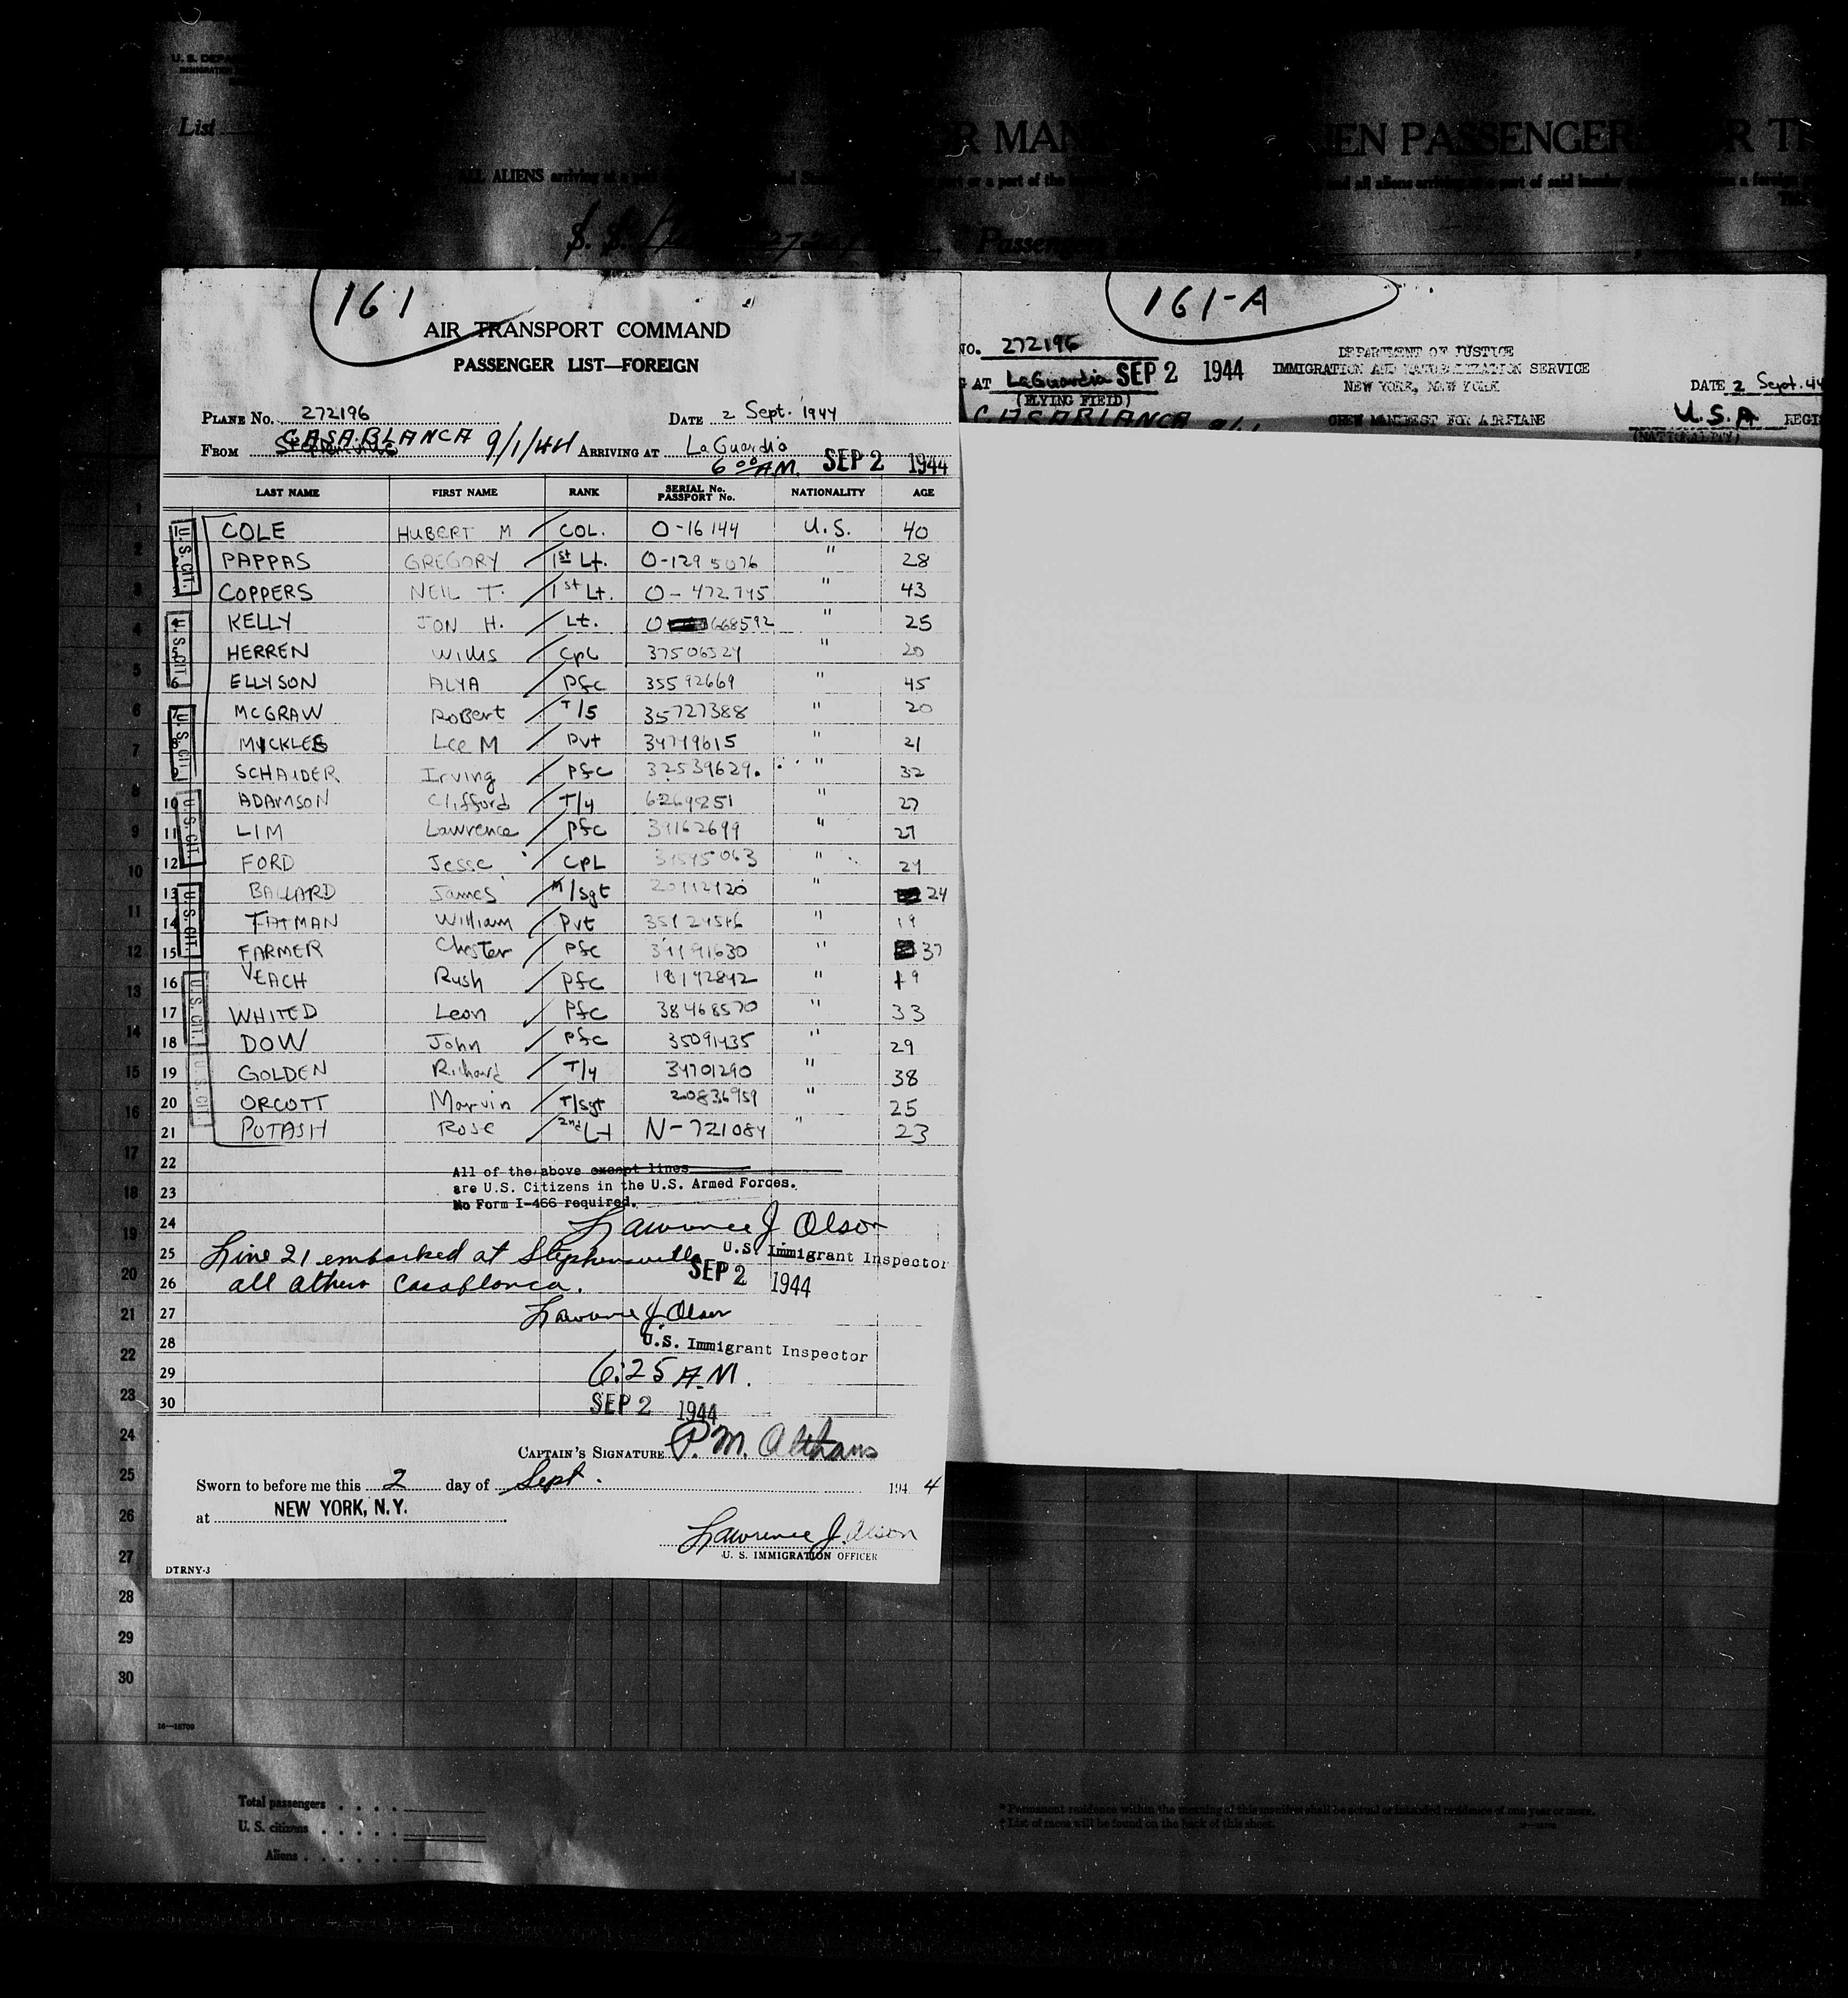 List
OR MAN IEN PASSENGERS OR TH
ALL ALIENS arriving at a
part or a part of the
and all aliens arriving at a part of said
S. S.
Passengers
161
AIR TRANSPORT COMMAND
PASSENGER LIST—FOREIGN
PLANE No. 272196 DATE 2 Sept. 1944
FROM CASABLANCA 9/1/44 ARRIVING AT LaGuardia
6 00 A.M. SEP 2 1944
LAST NAME FIRST NAME RANK SERIAL No. PASSPORT No. NATIONALITY AGE
1 COLE HUBERT M COL. O-16144 U.S. 40
PAPPAS GREGORY 1st Lt. O-1295076 " 28
3 COPPERS NEIL T. 1st Lt. O-472745 " 43
4 KELLY JON H. Lt. O 668592 " 25
5 HERREN Willis Cpl 37506324 " 20
6 ELLYSON ALYA Pfc 35592669 " 45
7 MCGRAW RoBert T/5 35727388 " 20
8 MICKLES Lee M Pvt 34749615 " 21
9 SCHAIDER Irving Pfc 32539629. " 32
10 ADAMSON Clifford T/4 6269251 " 27
11 LIM Lawrence Pfc 39162699 " 27
12 FORD Jesse CpL " 24
13 BALLARD James M/Sgt 20112120 " 24
14 William Pvt " 19
15 FARMER Chester Pfc " 37
16 VEACH Rush Pfc 18192842 " 19
17 WHITED Leon Pfc 38468570 " 33
18 DOW John Pfc 35091435 " 29
19 GOLDEN Richard T/4 34701290 " 38
20 ORCOTT Marvin T/Sgt 20836959 " 25
21 POTASH Rose 2nd Lt N-721084 " 23
U.S. CIT.
U.S. CIT.
U.S. CIT.
U.S. CIT.
U.S. CIT.
U.S. CIT.
U.S. CIT.
22
All of the above except lines
23
are U.S. Citizens in the U.S. Armed Forces.
No Form I-466 required.
24
Lawrence J Olson
U.S. Immigrant Inspector
25 Line 21 embarked at Stephensville
SEP 2 1944
26 all others Casablanca.
27 Lawrence J Olson
28 U.S. Immigrant Inspector
29 6:25 A.M.
30 SEP 2 1944
CAPTAIN'S SIGNATURE P. M. Althaus
Sworn to before me this 2 day of Sept. 194 4
at NEW YORK, N.Y.
Lawrence J. Olson
U. S. IMMIGRATION OFFICER
DTRNY-3
161-A
NO. 272196
DEPARTMENT OF JUSTICE
AT LaGuardia SEP 2 1944 IMMIGRATION AND NATURALIZATION SERVICE
(FLYING FIELD) NEW YORK, NEW YORK DATE 2 Sept. 44
CASABLANCA 9/1 CREW MANIFEST FOR AIRPLANE U.S.A REGI
(NATIONALITY)
1
2
3
4
5
6
7
8
9
10
11
12
13
14
15
16
17
18
19
20
21
22
23
24
25
26
27
28
29
30
16—18700
Total passengers
U. S. citizens
Aliens
* Permanent residence within the meaning of this manifest shall be actual or intended residence of one year or more.
† List of races will be found on the back of this sheet.